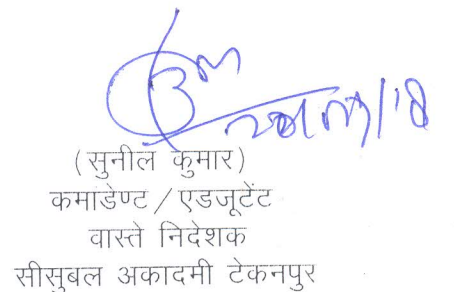 (सुनील कुमार)
कमांडेण्ट / एडजूटेंट
वास्ते निदेशक
सीसुबल अकादमी टेकनपुर